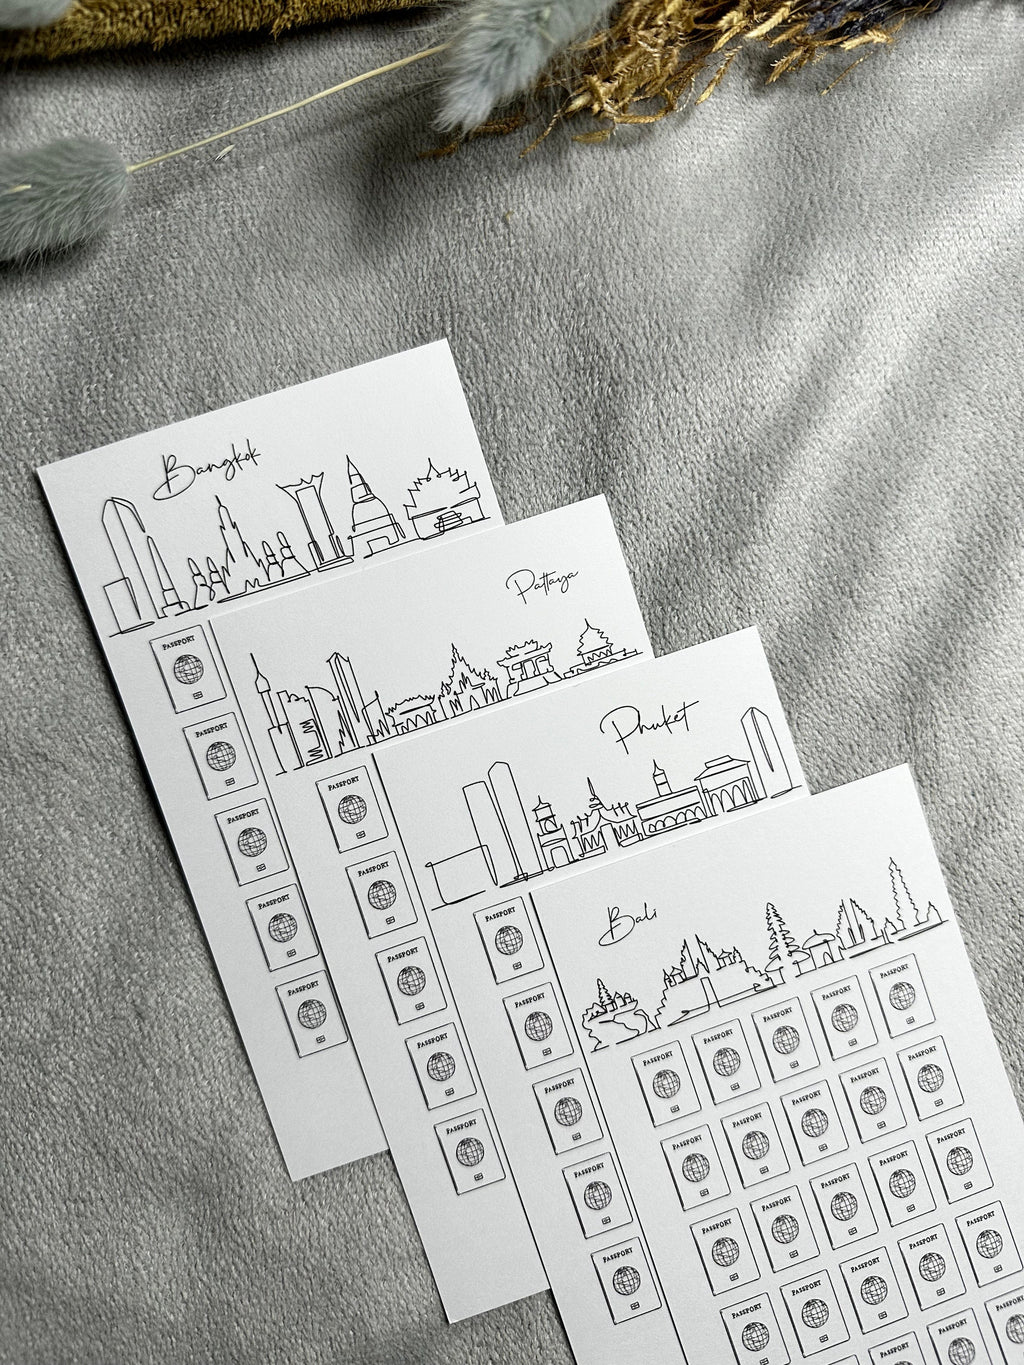 Bangkok
PASSPORT
PASSPORT
PASSPORT
PASSPORT
PASSPORT
Pattaya
PASSPORT
PASSPORT
PASSPORT
PASSPORT
PASSPORT
Phuket
PASSPORT
PASSPORT
PASSPORT
PASSPORT
PASSPORT
Bali
PASSPORT PASSPORT PASSPORT PASSPORT PASSPORT
PASSPORT PASSPORT PASSPORT PASSPORT PASSPORT
PASSPORT PASSPORT PASSPORT PASSPORT PASSPORT
PASSPORT PASSPORT PASSPORT PASSPORT PASSPORT
PASSPORT PASSPORT